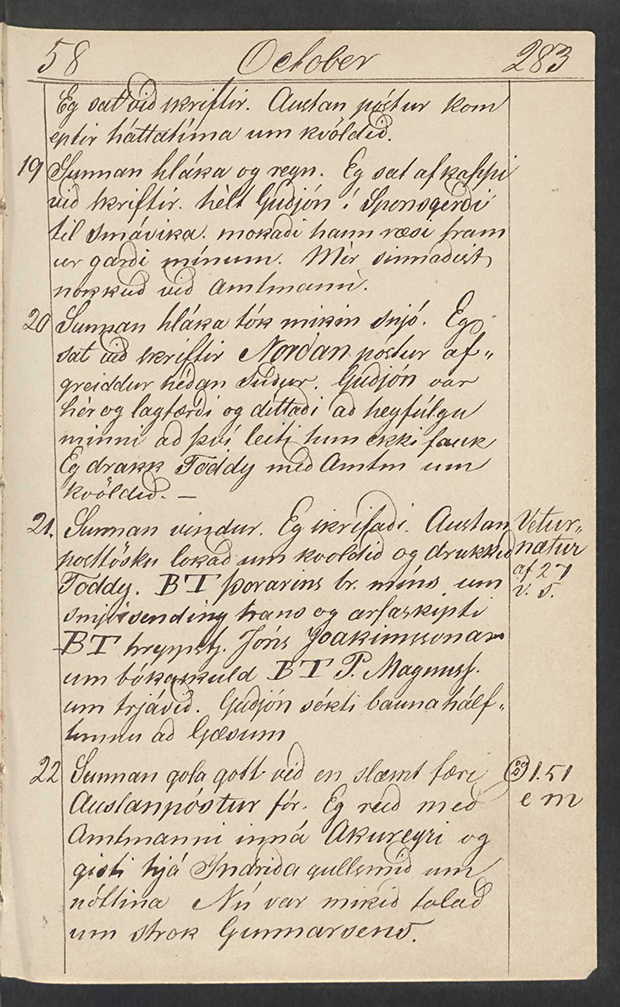 58 October 283
Eg sat við skriftir. Austan póstur kom
eptir háttatíma um kvöldið.
19 Sunnan hláka og regn. Eg sat af kappi
við skriftir. hélt Guðjón í Sponsgerði
til smávika. mokaði hann ræsi fram
ur garði mínum. Mér sinnaðist
nokkuð við amtmann.
20 Sunnan hláka tók mikin snjó. Eg
sat við skriftir Norðan póstur af„
greiddur héðan súður. Guðjón var
hér og lagfærði og dittaði að heyfúlgu
minni að því leiti hun ekki fauk
Eg drakk Toddy með Amtm um
kvöldið. —
21. Sunnan vindur. Eg skrifaði. Austan Vetur„
posttösku lokað um kvoldið og drukkið nætur
Toddy. BT þorarins br. míns um af 27
smjörsending hans og arfaskipti v. s.
BT hreppstj. Jóns Joakimssonar
um bókaskuld BT P. Magnuss.
um trjávið. Guðjón sókti bauna hálf„
tunnu að Gæsum
22 Sunnan gola gott veð en slæmt færi 1.51
Austanpóstur fór. Eg reið með e m
Amtmanni inná Akureyri og
gisti hjá Indriða gullsmið um
nóttina Nú var mikið talað
um strok Gunnarsens.